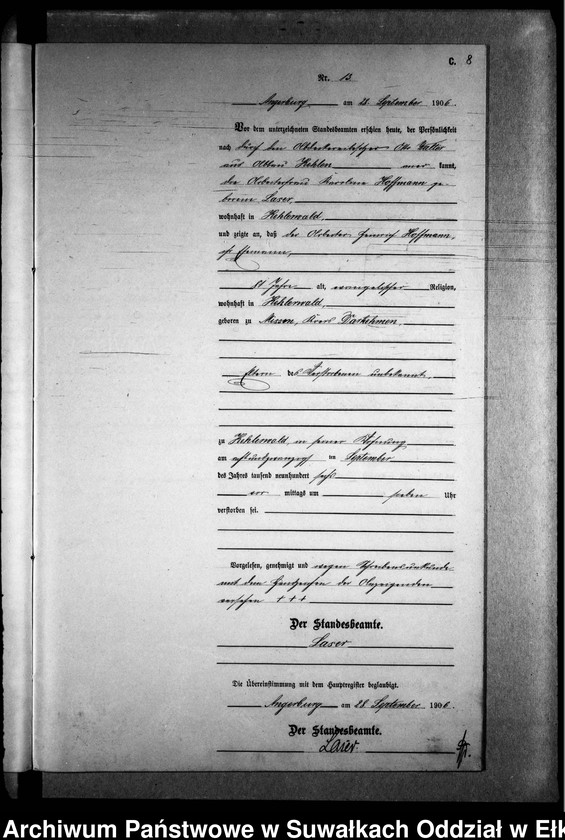 C. 8
Nr. 13
Angerburg am 28 September 1906.
Vor dem unterzeichneten Standesbeamten erschien heute, der Persönlichkeit
nach durch den Otto
aus kannt,
die Arbeiterfrau Karoline Hoffmann ge-
borene Laser,
wohnhaft in Kehlerwald,
und zeigte an, daß der Arbeiter Heinrich Hoffmann,
ihr Ehemann,
Jahre alt, evangelischer Religion,
wohnhaft in Kehlerwald,
geboren zu Kreis Darkehmen,
Eltern des Verstorbenen unbekannt,
zu Kehlerwald, in seiner Wohnung
am achtundzwanzig ten September
des Jahres tausend neunhundert sechs
vor mittags um sieben Uhr
verstorben sei.
Vorgelesen, genehmigt und wegen Schreibensunkunde
mit dem Handzeichen der Anzeigenden
versehen + + +
Der Standesbeamte.
Laser
Die Übereinstimmung mit dem Hauptregister beglaubigt.
Angerburg am 28. September 1906.
Der Standesbeamte.
Laser
Archiwum Państwowe w Suwałkach Oddział w Ełk